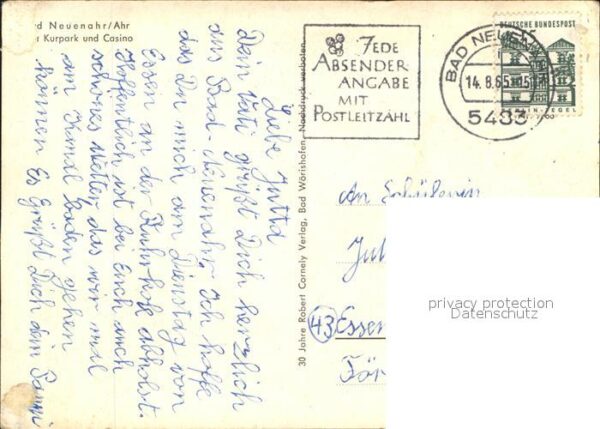 Bad Neuenahr/Ahr
Kurpark und Casino
Liebe Jutta
Dein Vati grüßt Dich herzlich
aus Bad-Neuenahr. Ich hoffe
das Du mich am Dienstag von
Essen an der Ruhr holt abholst.
Hoffentlich ist bei Euch auch
schönes Wetter das wir mal
am Kanal baden gehen
können Es Grüßt Dich dein
30 Jahre Robert Cornely Verlag, Bad Wörishofen, Nachdruck verboten
JEDE
ABSENDER
ANGABE
MIT
POSTLEITZAHL
BAD NEUEN
14.8.65
5483
DEUTSCHE BUNDESPOST
TEGEL
An Schülerin
Jut
(43) Essen
För
privacy protection
Datenschutz